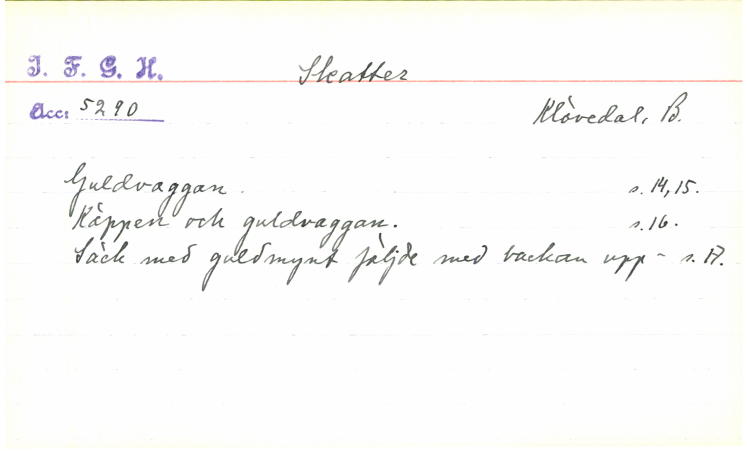 I. F. G. H. Skatter
Acc: 5290 Klövedal, B.
Guldvaggan. s. 14, 15.
Käppen och guldvaggan. s. 16.
Säck med guldmynt följde med backan upp - s. 17.